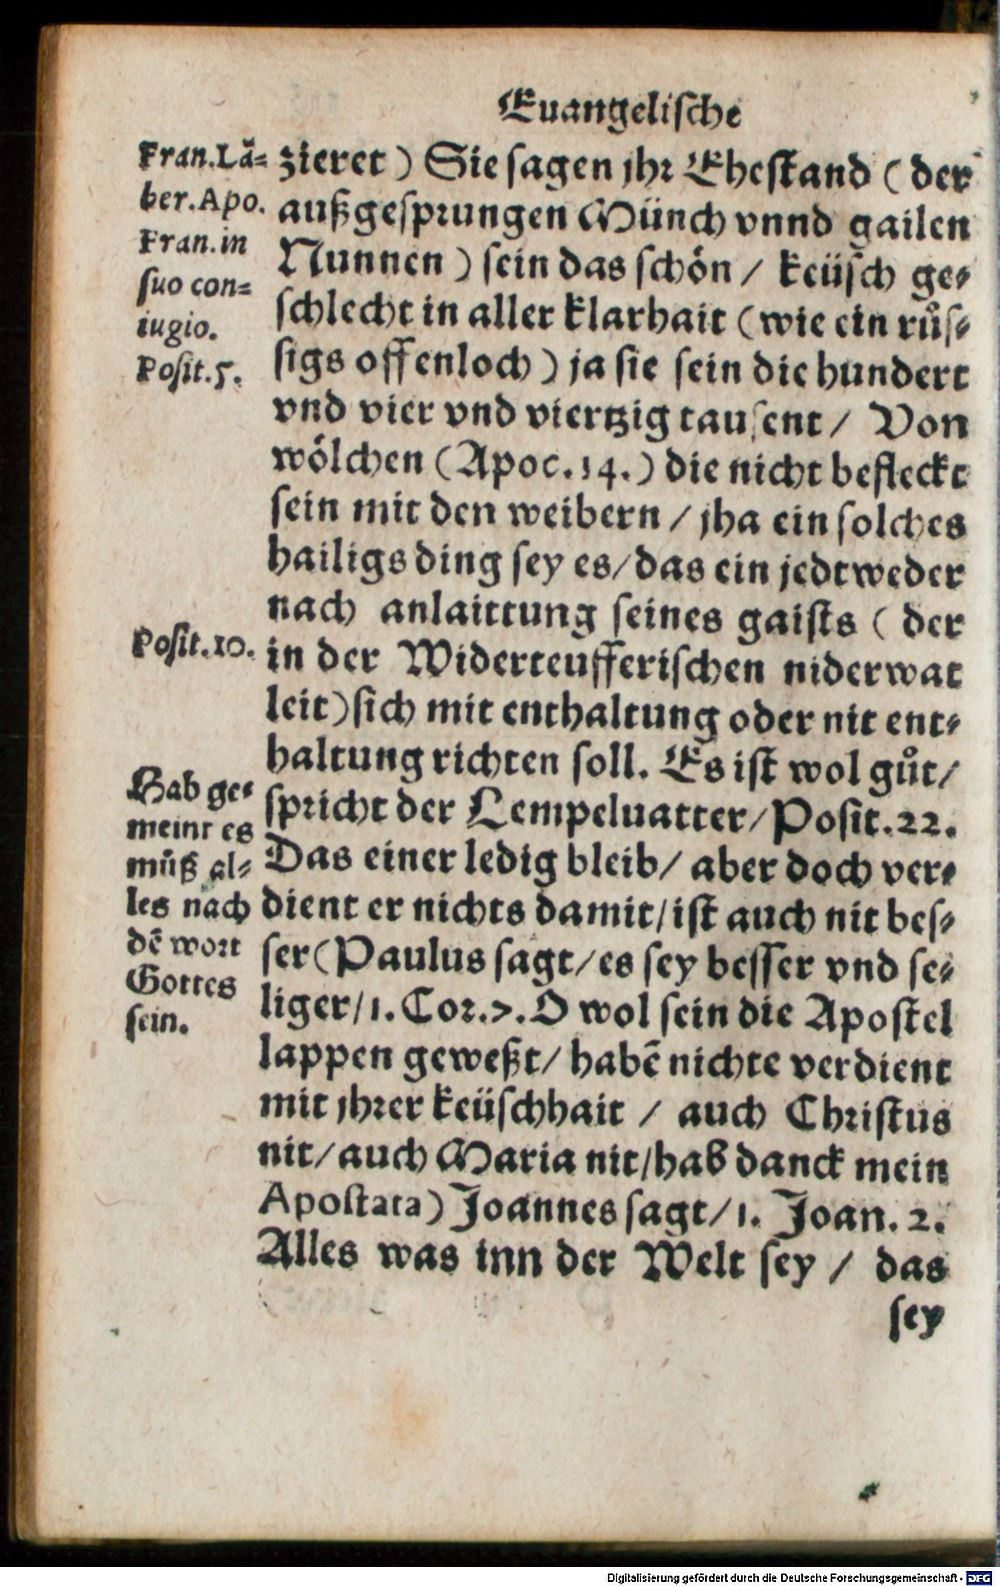 Euangelische
Fran.Lã=
ber.Apo.
Fran.in
suo con=
iugio.
Posit.5.
Posit.10.
Hab ge=
meint es
müß al=
les nach
dē wort
Gottes
sein.
zieret) Sie sagen jhr Ehestand (der
außgesprungen Münch vnnd gailen
Nunnen) sein das schön / keüsch ge=
schlecht in aller klarhait (wie ein růs=
sigs offenloch) ja sie sein die hundert
vnd vier vnd viertzig tausent / Von
wölchen (Apoc.14.) die nicht befleckt
sein mit den weibern / jha ein solches
hailigs ding sey es/das ein jedtweder
nach anlaittung seines gaists (der
in der Widerteufferischen niderwat
leit)sich mit enthaltung oder nit ent=
haltung richten soll. Es ist wol gůt/
spricht der Lempeluatter/Posit.22.
Das einer ledig bleib/ aber doch ver=
dient er nichts damit/ist auch nit bes=
ser(Paulus sagt/es sey besser vnd se=
liger/1.Cor.7.O wol sein die Apostel
lappen geweßt/ habē nichte verdient
mit jhrer keüschhait / auch Christus
nit/auch Maria nit/hab danck mein
Apostata) Joannes sagt/1. Joan. 2.
Alles was inn der Welt sey / das
sey
Digitalisierung gefördert durch die Deutsche Forschungsgemeinschaft - DFG